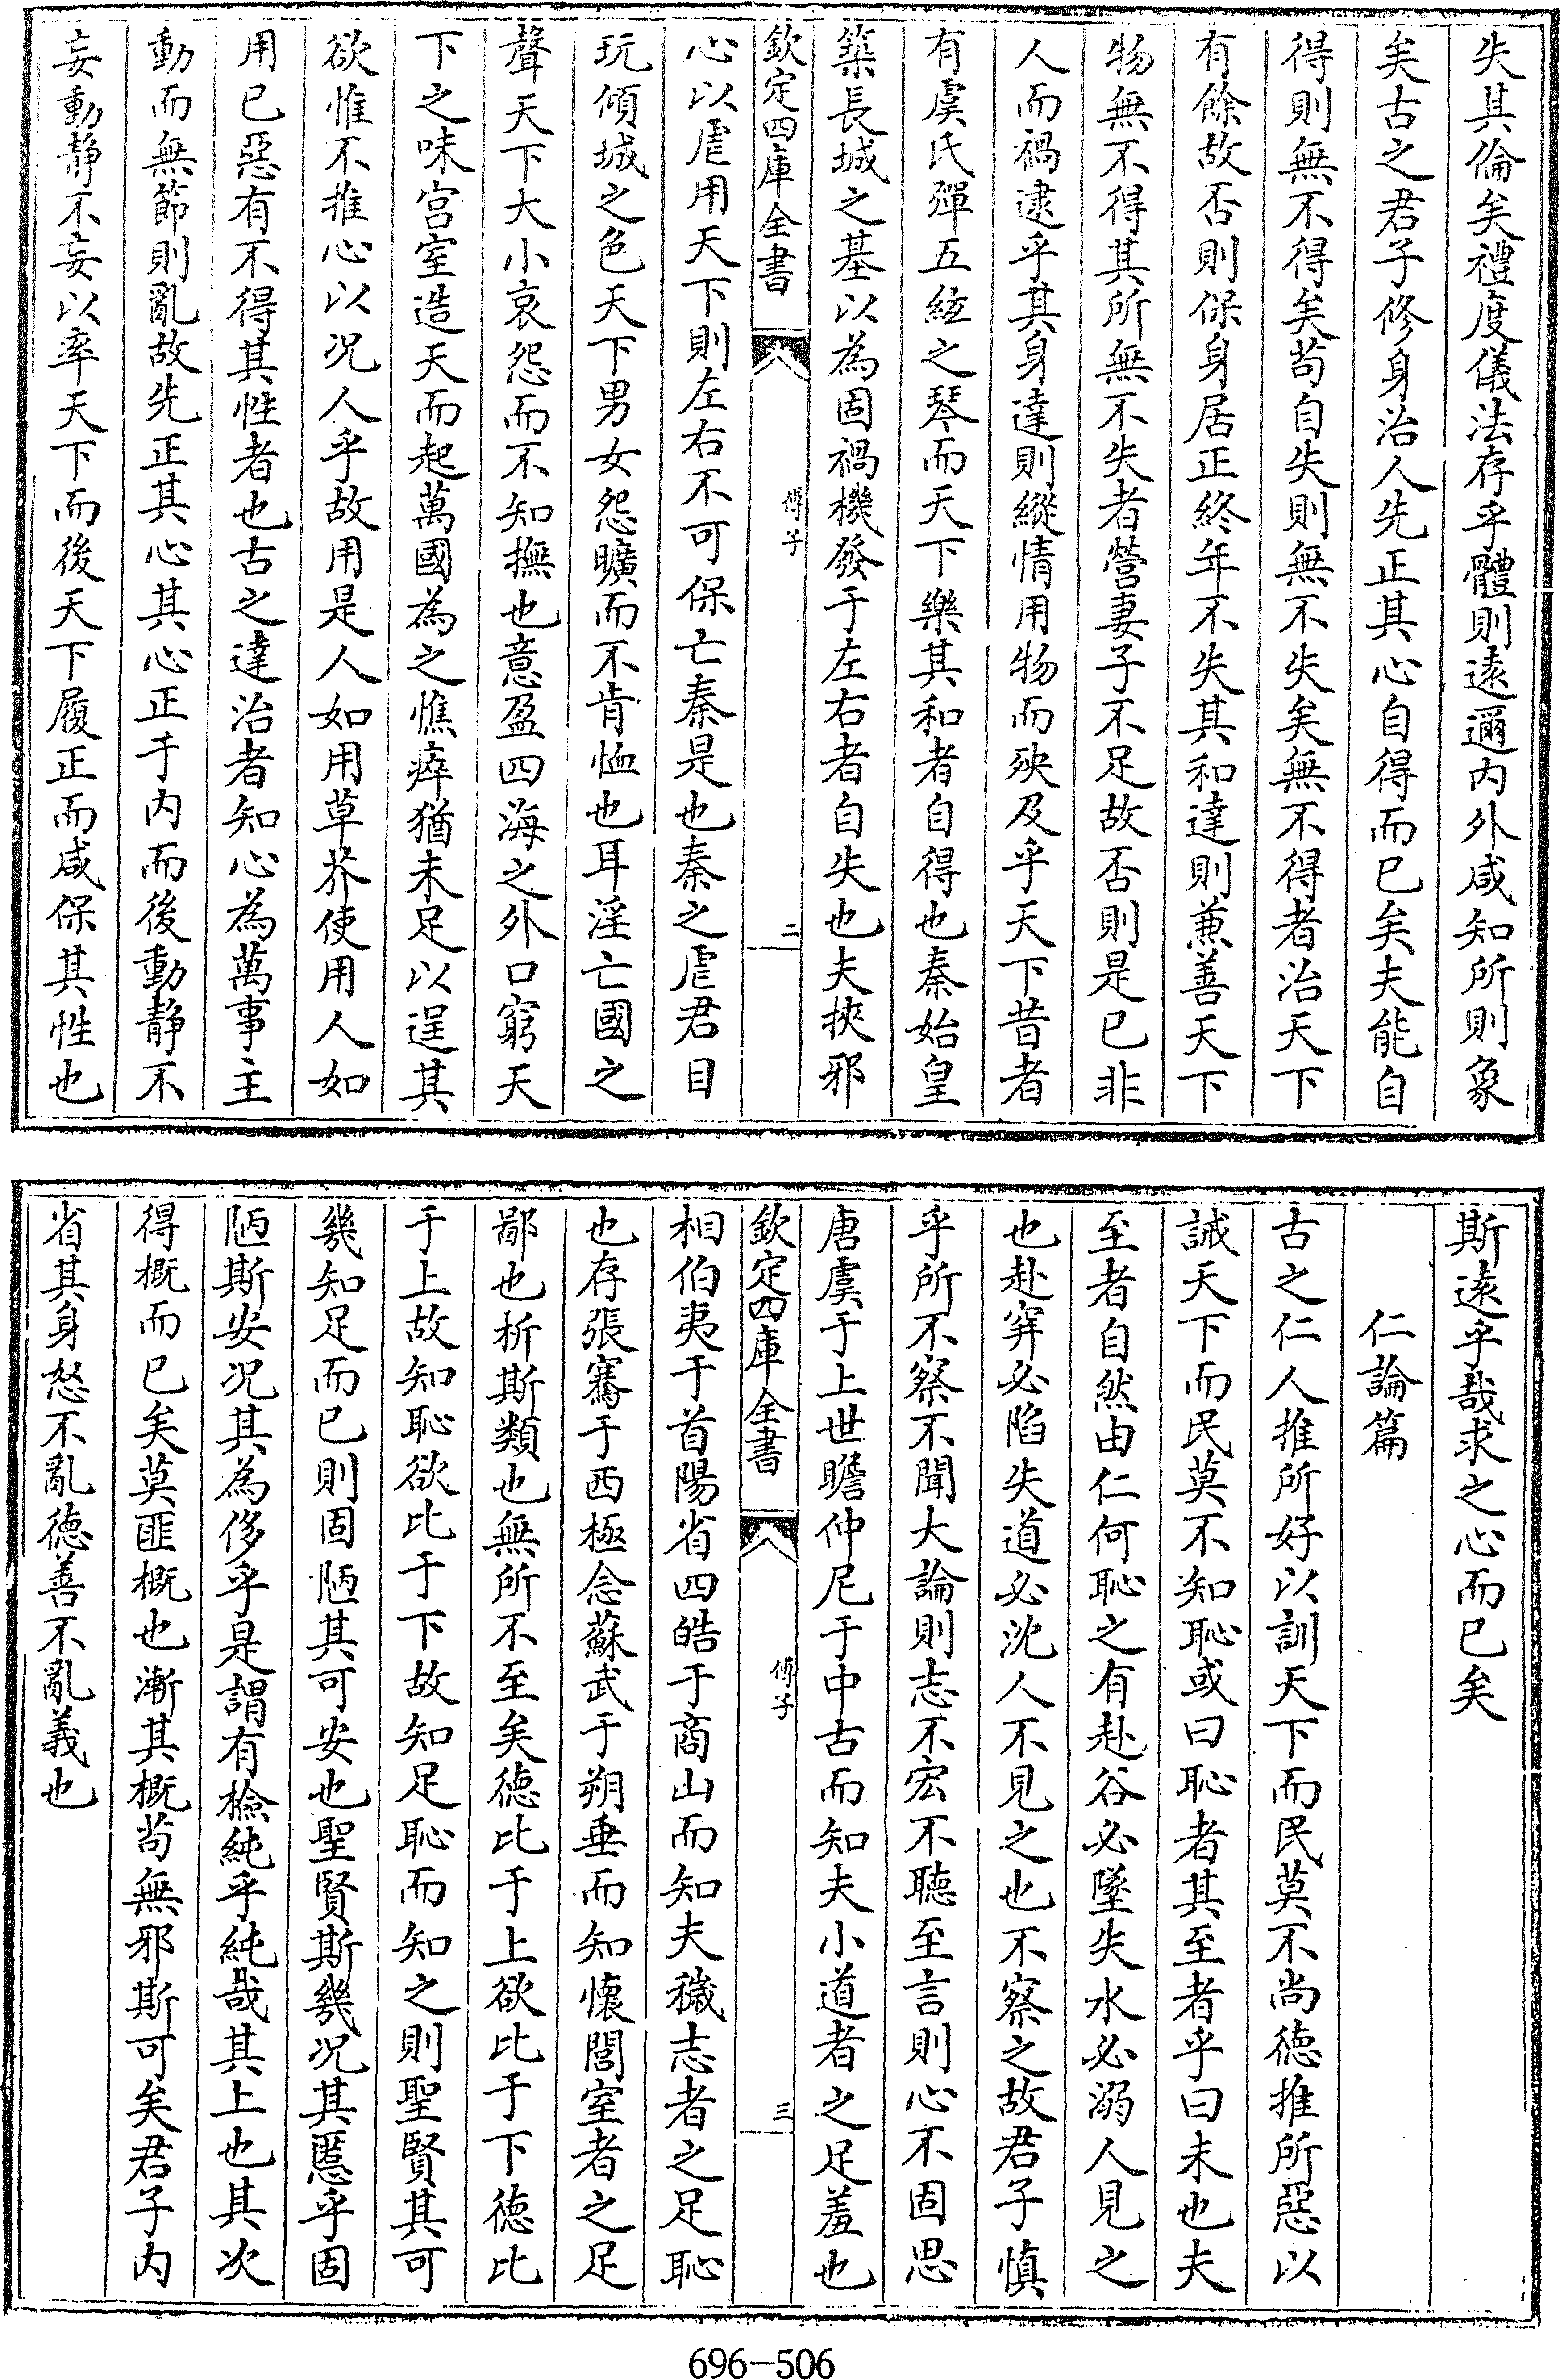 失其倫矣禮度儀法存乎體則遠邇内外咸知所則象
矣古之君子修身治人先正其心自得而已矣夫能自
得則無不得矣苟自失則無不失矣無不得者治天下
有餘故否則保身居正終年不失其和達則兼善天下
物無不得其所無不失者營妻子不足故否則是已非
人而禍逮乎其身達則縱情用物而殃及乎天下昔者
有虞氏彈五絃之琴而天下樂其和者自得也秦始皇
築長城之基以為固禍機發于左右者自失也夫挾邪
欽定四庫全書
傅子
二
心以虐用天下則左右不可保亡秦是也秦之虐君目
玩傾城之色天下男女怨曠而不肯恤也耳淫亡國之
聲天下大小哀怨而不知撫也意盈四海之外口窮天
下之味宫室造天而起萬國為之憔瘁猶未足以逞其
欲惟不推心以况人乎故用是人如用草芥使用人如
用已惡有不得其性者也古之達治者知心為萬事主
動而無節則亂故先正其心其心正于内而後動静不
妄動静不妄以率天下而後天下履正而咸保其性也
斯遠乎哉求之心而已矣
仁論篇
古之仁人推所好以訓天下而民莫不尚德推所惡以
誡天下而民莫不知恥或曰恥者其至者乎曰未也夫
至者自然由仁何恥之有赴谷必墜失水必溺人見之
也赴穽必陷失道必沈人不見之也不察之故君子慎
乎所不察不聞大論則志不宏不聽至言則心不固思
唐虞于上世瞻仲尼于中古而知夫小道者之足羞也
欽定四庫全書
傅子
三
相伯夷于首陽省四皓于商山而知夫穢志者之足恥
也存張騫于西極念蘇武于朔垂而知懷閭室者之足
鄙也析斯類也無所不至矣德比于上欲比于下德比
于上故知恥欲比于下故知足恥而知之則聖賢其可
幾知足而已則固陋其可安也聖賢斯幾况其慝乎固
陋斯安况其為侈乎是謂有檢純乎純哉其上也其次
得概而已矣莫匪概也漸其概苟無邪斯可矣君子内
省其身怒不亂德善不亂義也
696-506